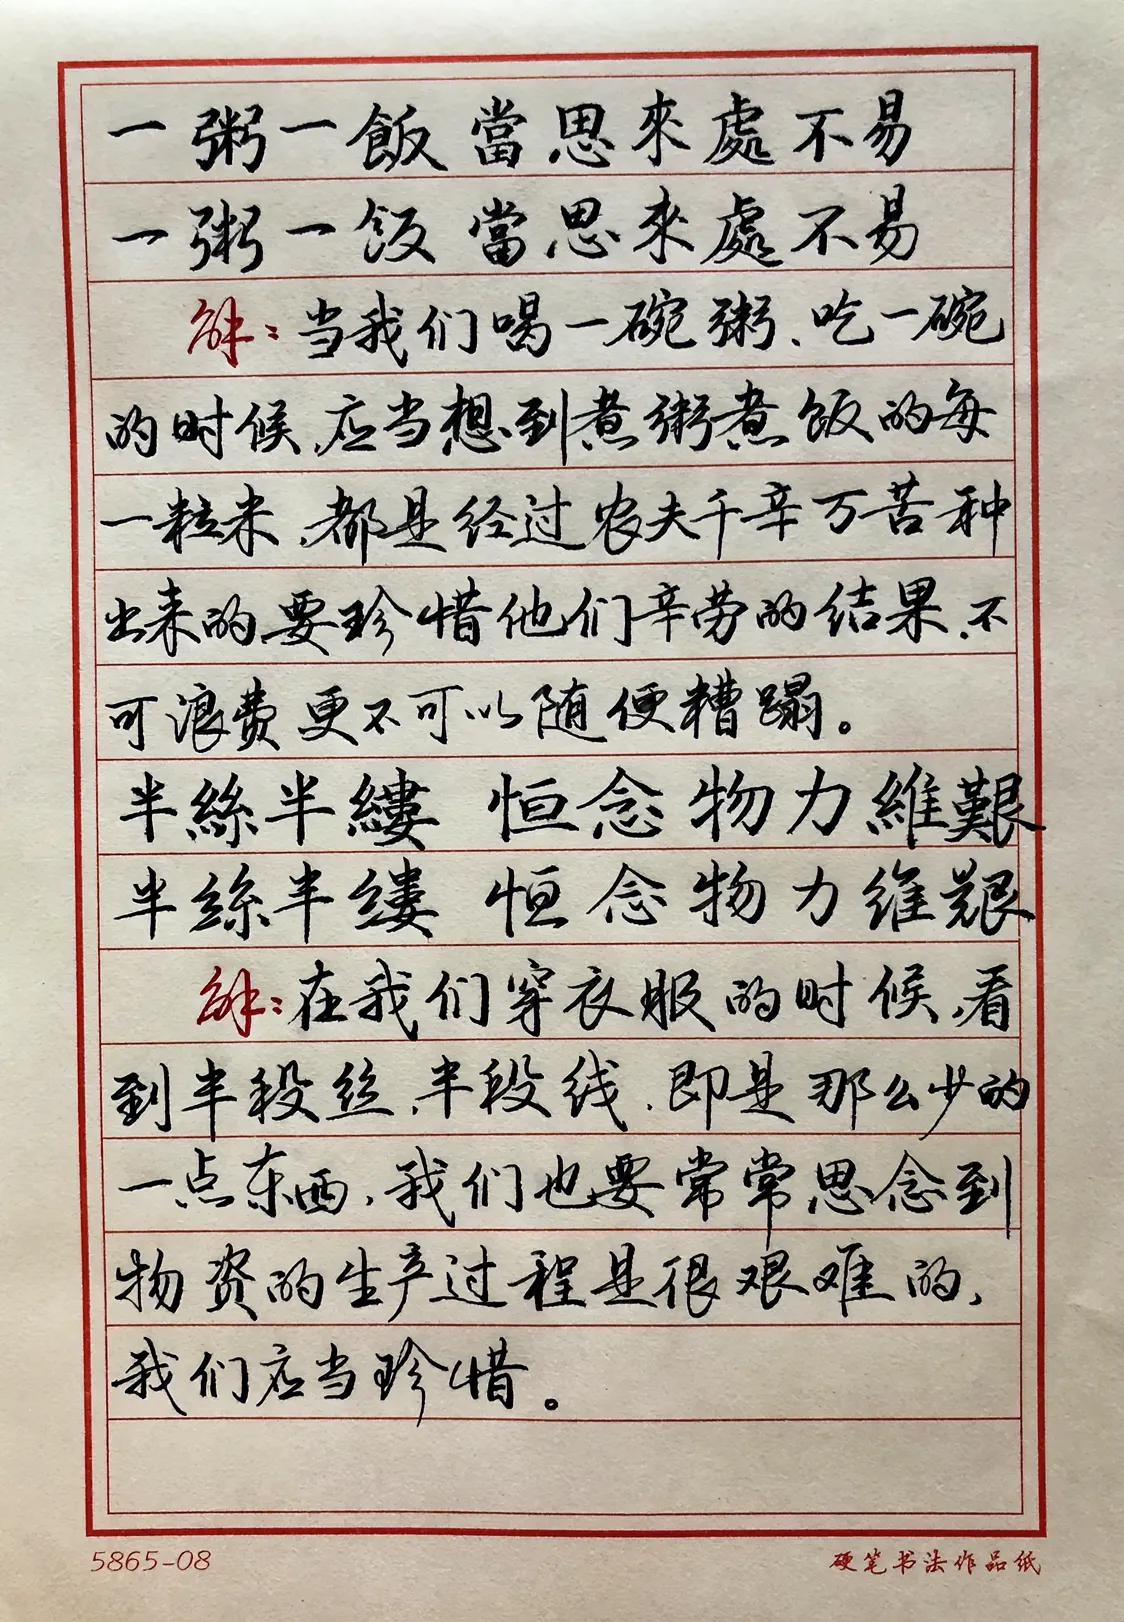 一粥一飯當思來處不易
一粥一饭當思來處不易
解：当我们喝一碗粥、吃一碗
的时候，应当想到煮粥煮饭的每
一粒米，都是经过农夫千辛万苦种
出来的，要珍惜他们辛劳的结果，不
可浪费更不可以随便糟蹋。
半絲半縷 恒念物力維艱
半絲半缕 恒念物力维艱
解：在我们穿衣服的时候，看
到半段丝，半段线，即是那么少的
一点东西，我们也要常常思念到
物资的生产过程是很艰难的，
我们应当珍惜。
5865-08
硬笔书法作品纸